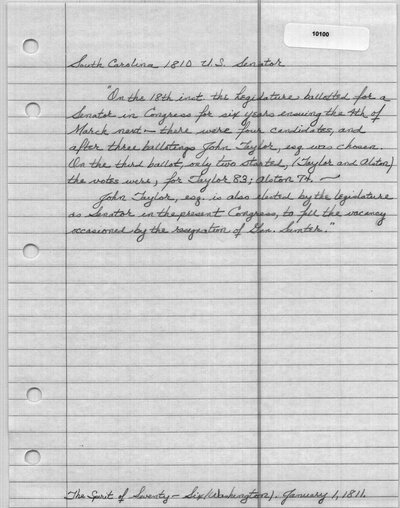 10100
South Carolina 1810 U.S. Senator
"On the 18th inst. the Legislature ballotted for a
Senator in Congress for six years ensuing the 4th of
March next — there were four candidates, and
after three ballotings John Taylor, esq was chosen.
On the third ballot, only two started, (Taylor and Alston)
the votes were, for Taylor 83; Alston 74. —
John Taylor, esq. is also elected by the legislature
as Senator in the present Congress, to fill the vacancy
occasioned by the resignation of Gen. Sumter."
The Spirit of Seventy-Six (Washington). January 1, 1811.